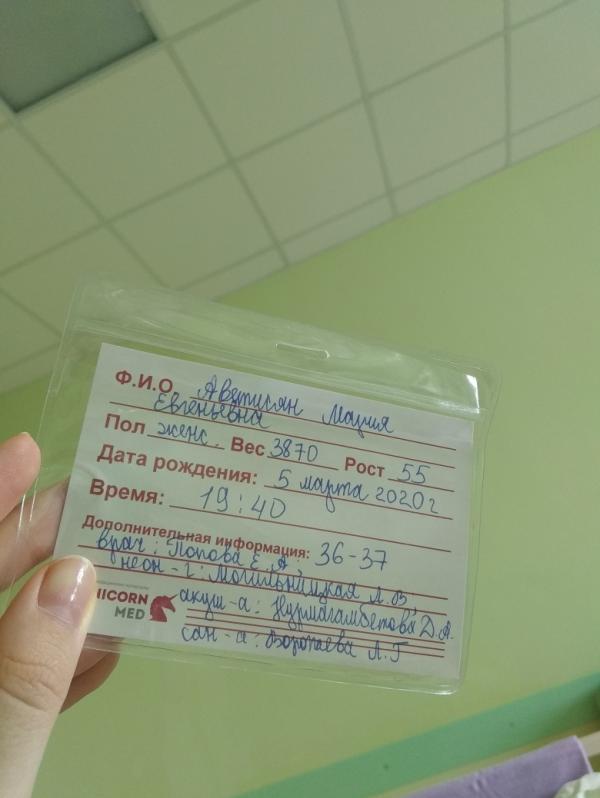 Ф.И.О. Аветисян Мария
Евгеньевна
Пол женс. Вес 3870 Рост 55
Дата рождения: 5 марта 2020г
Время: 19:40
Дополнительная информация: 36-37
врач: Попова Е.А.
неон-г: Могильницкая Л.В.
акуш-а: Нурмагамбетова Д.А.
сан-а: Воропаева Л.Г
NICORN
MED